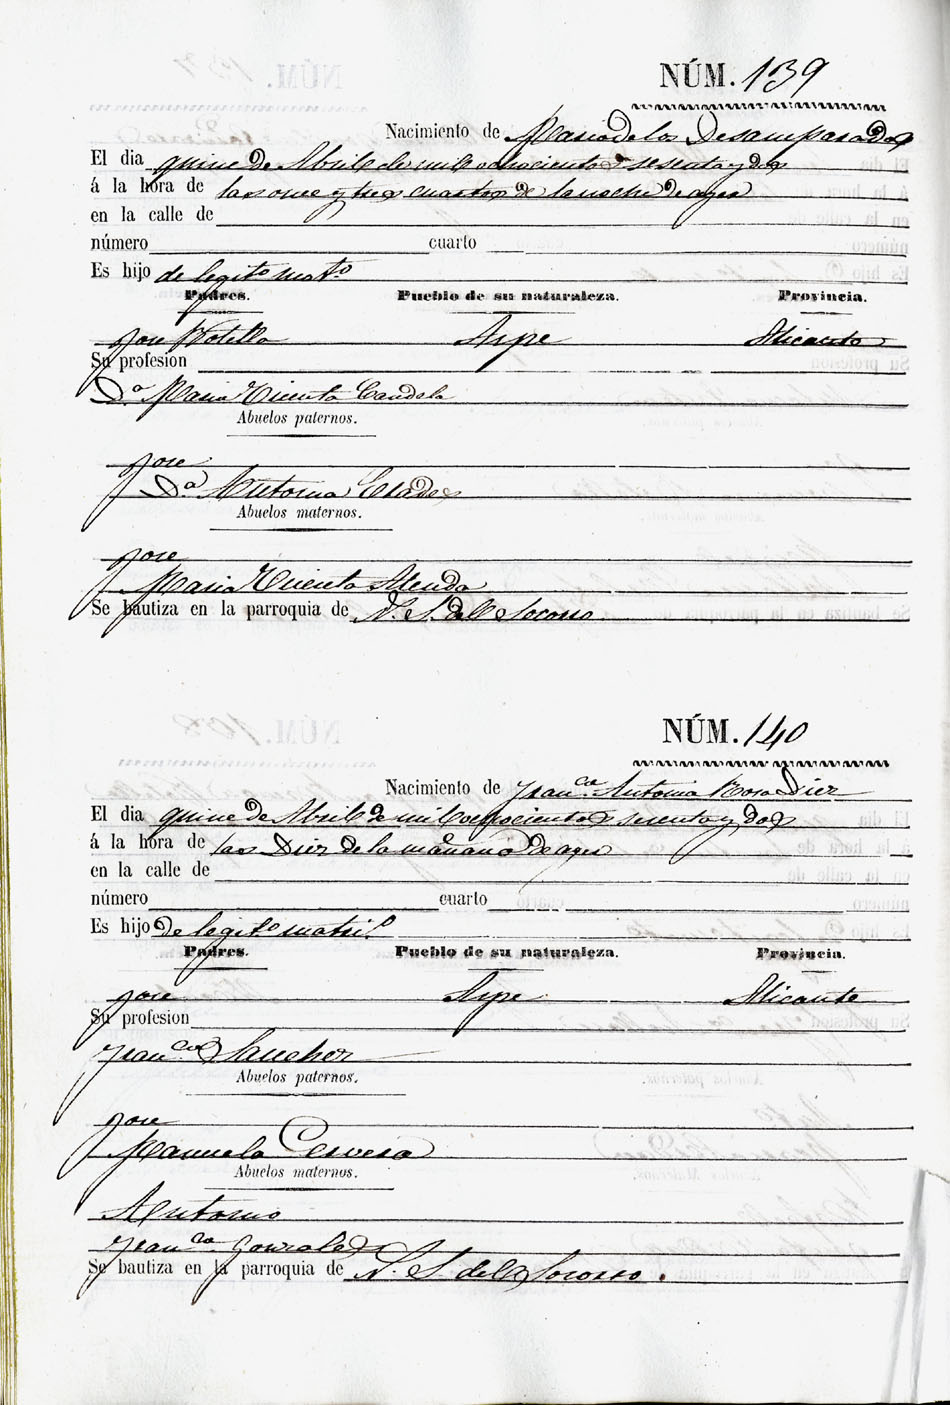 NÚM. 139
Nacimiento de Maria de los Desamparados
El dia quince de Abril de mil ochocientos sesenta y dos
á la hora de las once y tres cuartos de la noche de ayer
en la calle de
número cuarto
Es hijo de legit.º mat.º
Padres. Pueblo de su naturaleza. Provincia.
Jose Botella Aspe Alicante
Su profesión
D.ª Maria Vicenta Candela
Abuelos paternos.
Jose
D.ª Antonia
Abuelos maternos.
Jose
Maria Vicenta
Se bautiza en la parroquia de N.ª S.ª del Socorro.
NÚM. 140
Nacimiento de Fran.ca Antonia Rosa Diez
El dia quince de Abril de mil ochocientos sesenta y dos
á la hora de las Diez de la mañana de ayer
en la calle de
número cuarto
Es hijo de legit.º matril
Padres. Pueblo de su naturaleza. Provincia.
Jose Aspe Alicante
Su profesion
Fran.ca Sanchez
Abuelos paternos.
Jose
Manuela Cervera
Abuelos maternos.
Antonio
Fran.ca Gonzalez
Se bautiza en la parroquia de N. S. del Socorro.